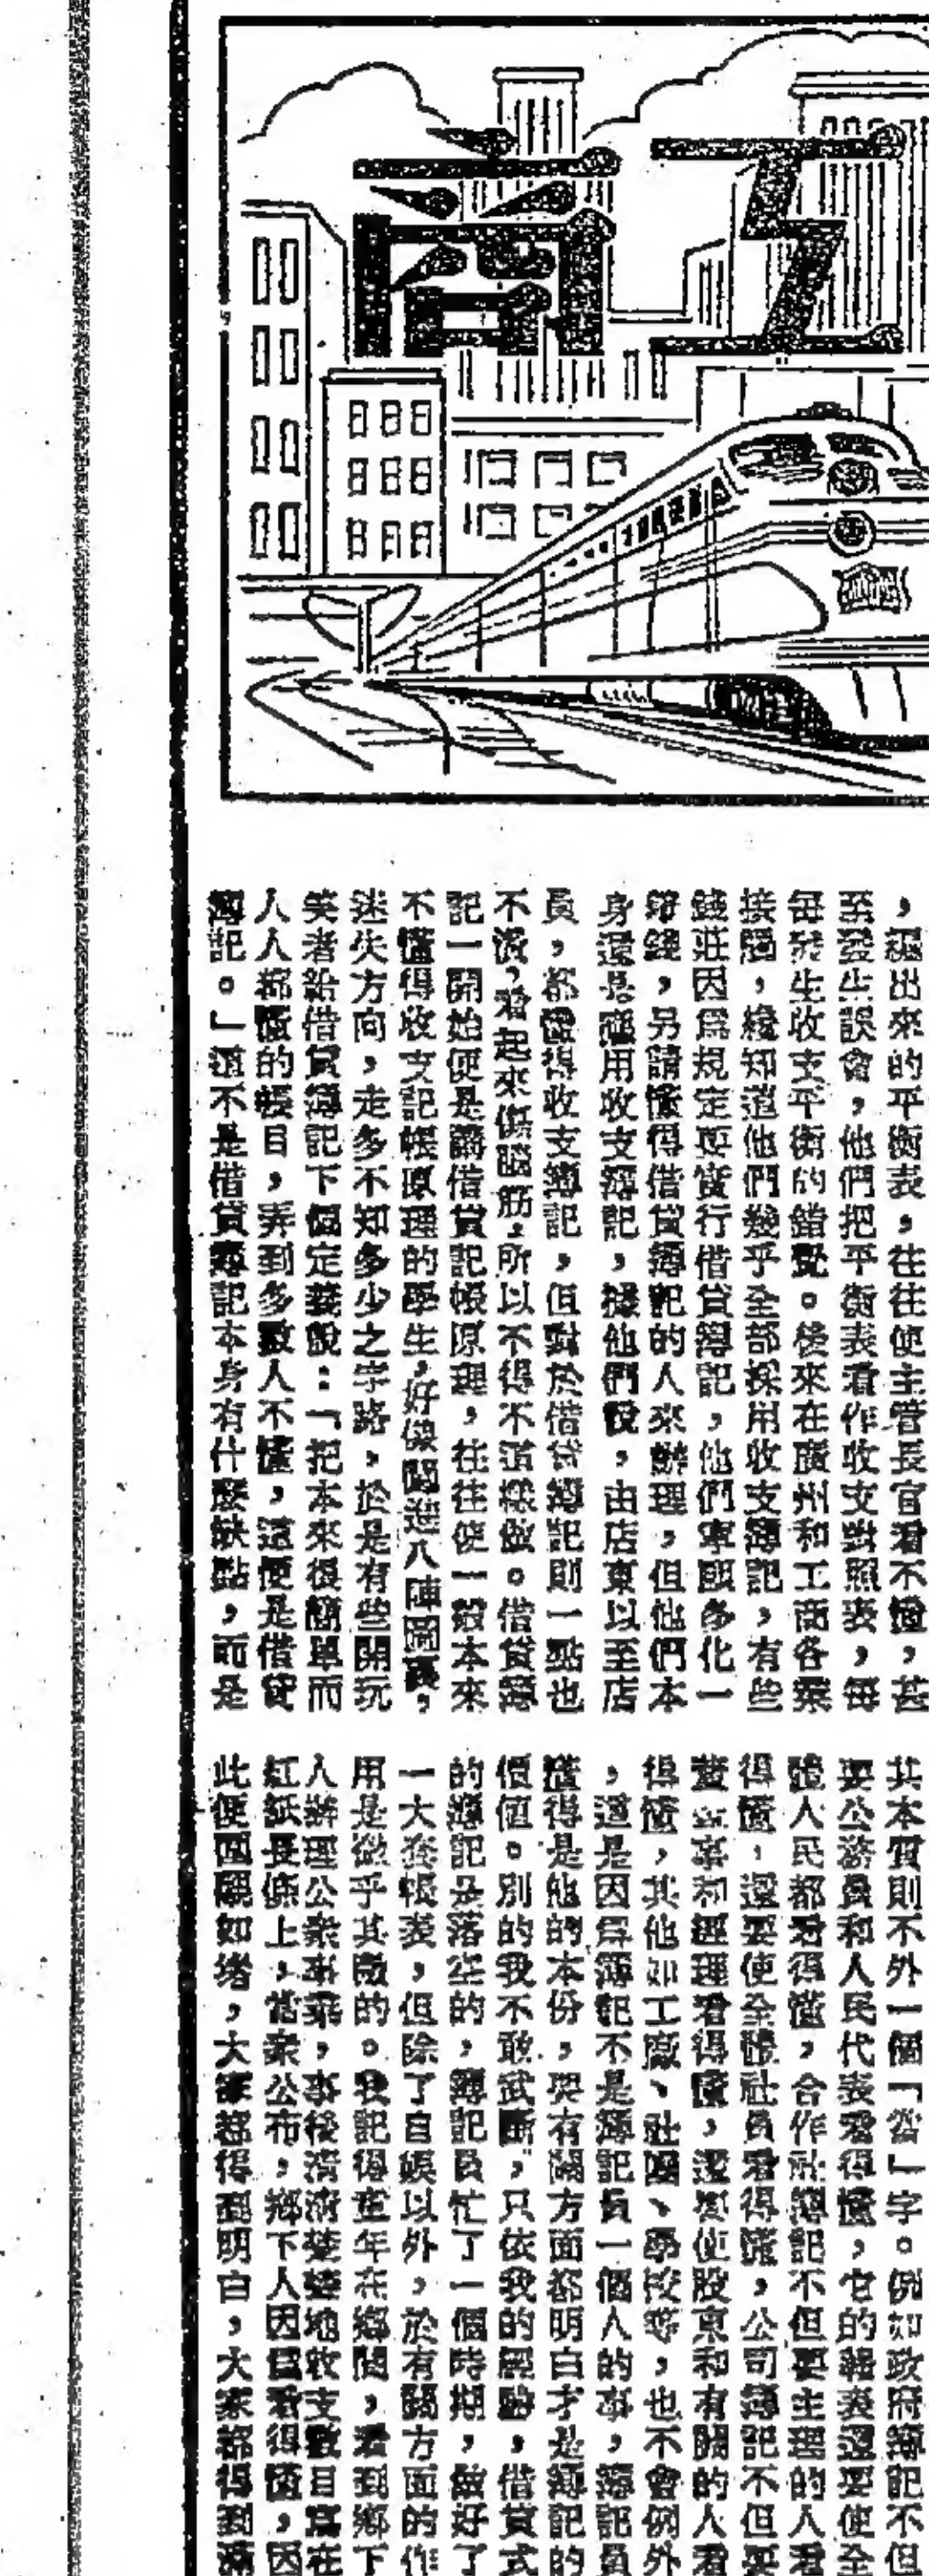 工商
，編出來的平衡表，往往使主管長官看不懂，甚
至發生誤會，他們把平衡表看作收支對照表，每
每發生收支平衡的錯覺。後來在廣州和工商各業
接觸，纔知道他們幾乎全部採用收支簿記，有些
錢莊因爲規定要實行借貸簿記，他們寧願多化一
筆錢，另請懂得借貸簿記的人來辦理，但他們本
身還是應用收支簿記，據他們說，由店東以至店
員，都懂得收支簿記，但對於借貸簿記則一點也
不懂，看起來傷腦筋，所以不得不這樣做。借貸簿
記一開始便是講借貸記帳原理，往往使一般本來
不懂得收支記帳原理的學生，好像闖進八陣圖裏，
迷失方向，走多不知多少之字路，於是有些開玩
笑者給借貸簿記下個定義說：「把本來很簡單而
人人都懂的帳目，弄到多數人不懂，這便是借貸
簿記。」這不是借貸簿記本身有什麼缺點，而是
其本質則不外一個「當」字。例如政府簿記不但
要公務員和人民代表看得懂，它的報表還要使全
體人民都看得懂，合作社簿記不但要主理的人看
得懂，還要使全體社員看得懂，公司簿記不但要
董事和經理看得懂，還要使股東和有關的人看
得懂，其他如工廠、社團、學校等，也不會例外
，這是因爲簿記不是簿記員一個人的事，簿記員
懂得是他的本份，要有關方面都明白才是簿記的
價值。別的我不敢武斷，只依我的經驗，借貸式
的簿記是落空的，簿記員忙了一個時期，做好了
一大套帳表，但除了自娛以外，於有關方面的作
用是微乎其微的。我記得童年在鄉間，看到鄉下
人辦理公衆事業，事後清清楚楚地收支數目寫在
紅紙長條上，當衆公布，鄉下人因爲看得懂，因
此便團團如堵，大家都得到明白，大家都得到滿